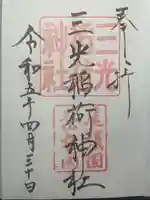 奉拝
三光稲荷神社
令和五年四月三十日
三光
稲荷
神社